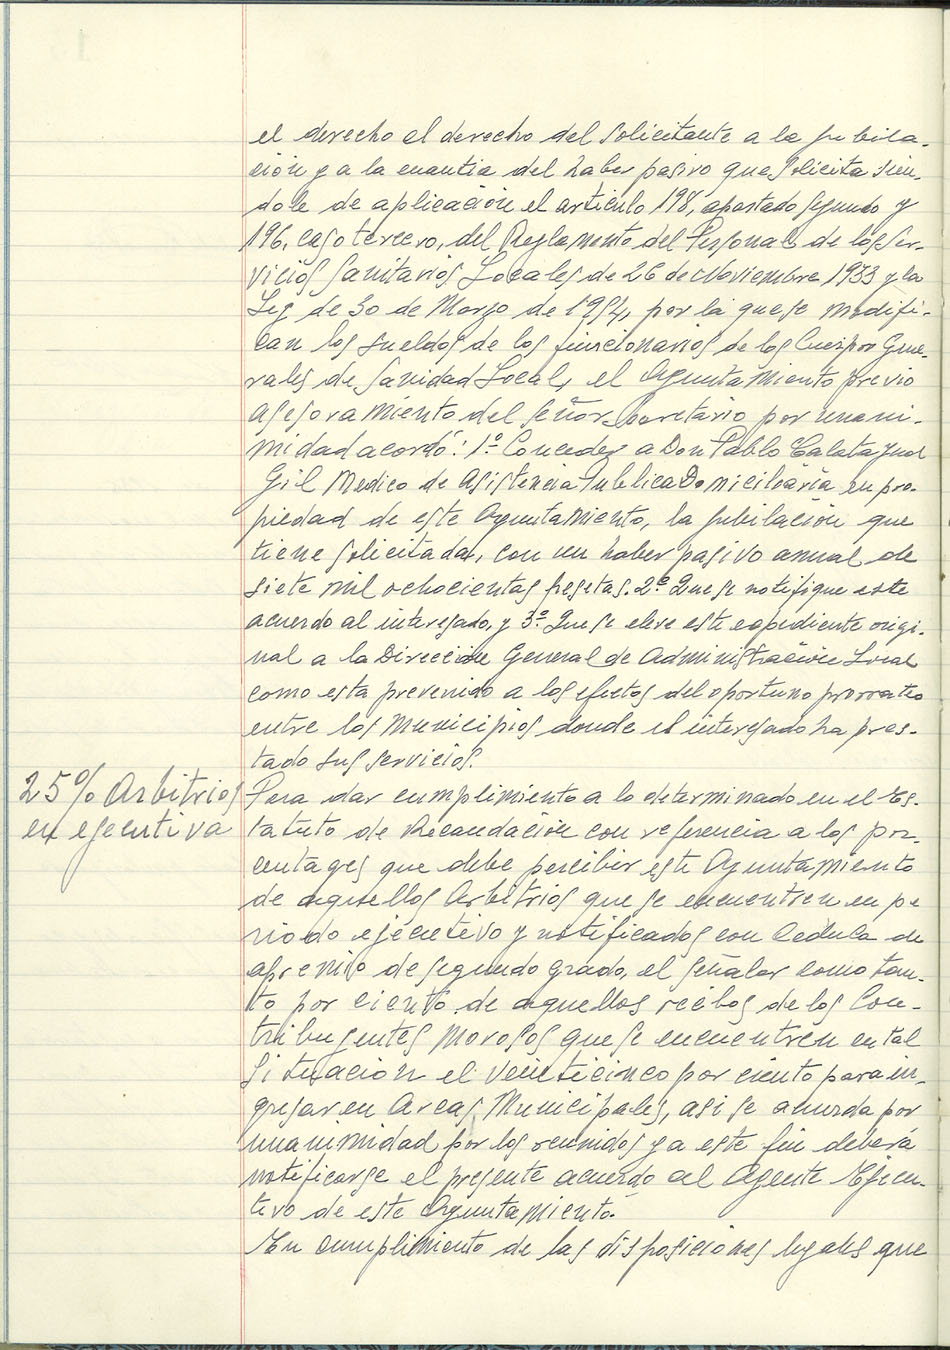 el derecho al derecho del solicitante a la jubila-
ción y a la cuantia del haber pasivo que solicita sien-
dole de aplicación el articulo 198, apartado segundo y
196, caso tercero, del Reglamento del Personal de los Ser-
vicios Sanitarios Locales de 26 de Noviembre 1933 y la
Ley de 30 de Marzo de 1954, por la que se modifi-
can los sueldos de los funcionarios de los Cuerpos Gene-
rales de Sanidad Local, el Ayuntamiento previo
asesoramiento del señor Secretario por unani-
midad acordó: 1º Conceder a Don Pablo
Gil Medico de Asistencia Publica Domiciliaria en pro-
piedad de este Ayuntamiento, la jubilación que
tiene solicitada, con un haber pasivo anual de
siete mil ochocientas pesetas. 2º Que se notifique este
acuerdo al interesado, y 3º Que se eleve este expediente origi-
nal a la Dirección General de Administración Local
como esta prevenido a los efectos del oportuno prorrateo
entre los Municipios donde el interesado ha pres-
tado sus servicios.
25% Arbitrios
en ejecutiva
Para dar cumplimiento a lo determinado en el Es-
tatuto de Recaudación con referencia a los por-
centages que debe percibir este Ayuntamiento
de aquellos Arbitrios que se encuentren en pe
riodo ejecutivo y notificados con Cedula de
apremio de segundo grado, el señalar como tan-
to por ciento de aquellos recibos de los Con-
tribuyentes Morosos que se encuentren en tal
Situación el veinticinco por ciento para in-
gresar en Arcas Municipales, asi se acuerda por
unanimidad por los reunidos y a este fin deberá
notificarse el presente acuerdo al Agente Ejecu-
tivo de este Ayuntamiento.
En cumplimiento de las disposiciones legales que